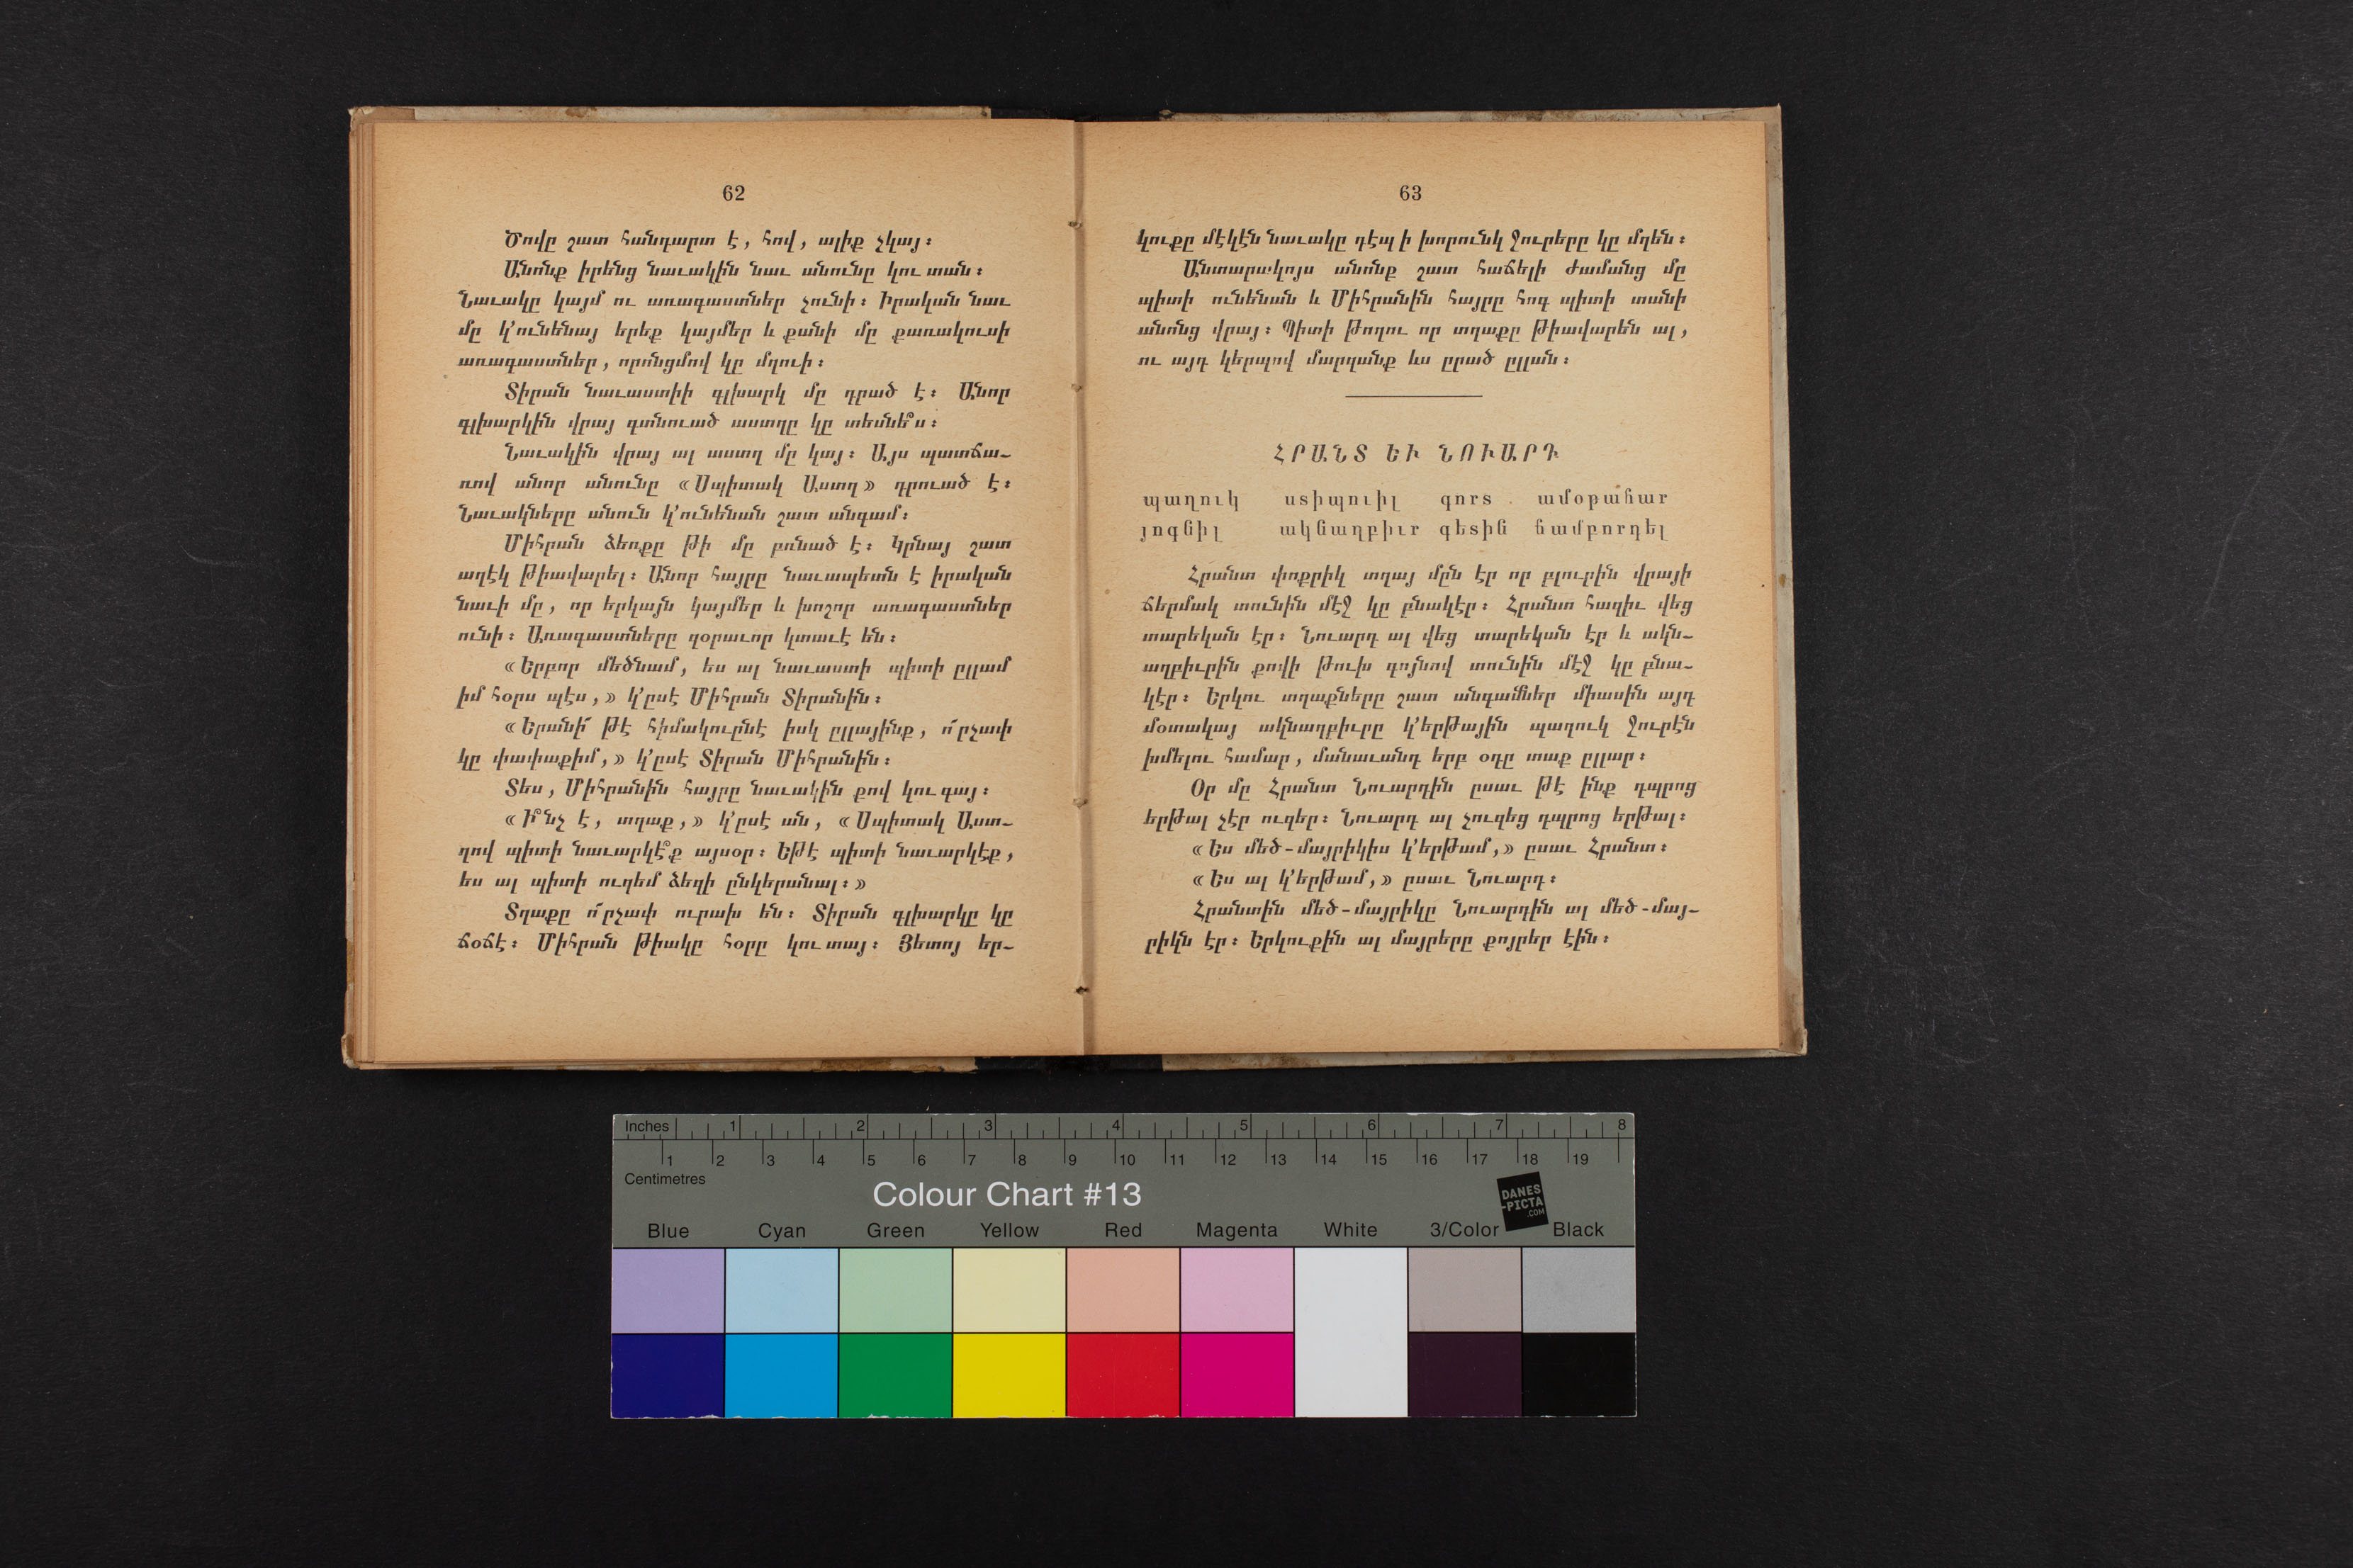 62
Ծովը շատ հանդարտ է, հով, ալիք չկայ։
Անոնք իրենց նաւակին նաւ անունը կու տան։
Նաւակը կայմ ու առագաստներ չունի։ Իրական նաւ
մը կ՚ունենայ երեք կայմեր և քանի մը քառակուսի
առագաստներ, որոնցմով կը մղուի։
Տիրան նաւաստիի գլխարկ մը դրած է։ Անոր
գլխարկին վրայ գտնուած աստղը կը տեսնե՞ս։
Նաւակին վրայ ալ աստղ մը կայ։ Այս պատճա-
ռով անոր անունը «Սպիտակ Աստղ» դրուած է։
Նաւակները անուն կ՚ունենան շատ անգամ։
Միհրան ձեռքը թի մը բռնած է։ Կրնայ շատ
աղէկ թիավարել։ Անոր հայրը նաւապետն է իրական
նաւի մը, որ երկայն կայմեր և խոշոր առագաստներ
ունի։ Առագաստները զօրաւոր կտաւէ են։
«Երբոր մեծնամ, ես ալ նաւաստի պիտի ըլլամ
իմ հօրս պէս,» կ՚ըսէ Միհրան Տիրանին։
«Երանի՜ թէ հիմակուընէ իսկ ըլլայինք, ո՜րչափ
կը փափաքիմ,» կ՚ըսէ Տիրան Միհրանին։
Տես, Միհրանին հայրը նաւակին քով կու գայ։
«Ի՞նչ է, տղաք,» կ՚ըսէ ան, «Սպիտակ Աստ-
ղով պիտի նաւարկէ՞ք այսօր։ Եթէ պիտի նաւարկէք,
ես ալ պիտի ուզեմ ձեզի ընկերանալ։»
Տղաքը ո՜րչափ ուրախ են։ Տիրան գլխարկը կը
ճօճէ։ Միհրան թիակը հօրը կու տայ։ Յետոյ եր-
63
կուքը մէկէն նաւակը դէպ ի խորունկ ջուրերը կը մղեն։
Անտարակոյս անոնք շատ հաճելի ժամանց մը
պիտի ունենան և Միհրանին հայրը հոգ պիտի տանի
անոնց վրայ։ Պիտի թողու որ տղաքը թիավարեն ալ,
ու այդ կերպով մարզանք ևս ըրած ըլլան։
ՀՐԱՆՏ ԵՒ ՆՈՒԱՐԴ
պաղուկ ստիպուիլ գորտ ամօթահար
յոգնիլ ակնաղբիւր գետին ճամբորդել
Հրանտ փոքրիկ տղայ մըն էր որ բլուրին վրայի
ճերմակ տունին մէջ կը բնակէր։ Հրանտ հազիւ վեց
տարեկան էր։ Նուարդ ալ վեց տարեկան էր և ակն-
աղբիւրին քովի թուխ գոյնով տունին մէջ կը բնա-
կէր։ Երկու տղաքները շատ անգամներ միասին այդ
մօտակայ ակնաղբիւրը կ՚երթային պաղուկ ջուրէն
խմելու համար, մանաւանդ երբ օդը տաք ըլլար։
Օր մը Հրանտ Նուարդին ըսաւ թէ ինք դպրոց
երթալ չէր ուզեր։ Նուարդ ալ չուզեց դպրոց երթալ։
«Ես մեծ-մայրիկիս կ՚երթամ,» ըսաւ Հրանտ։
«Ես ալ կ՚երթամ,» ըսաւ Նուարդ։
Հրանտին մեծ-մայրիկը Նուարդին ալ մեծ-մայ-
րիկն էր։ Երկուքին ալ մայրերը քոյրեր էին։
Inches 1 2 3 4 5 6 7 8
1 2 3 4 5 6 7 8 9 10 11 12 13 14 15 16 17 18 19
Centimetres
Colour Chart #13
DANES
-PICTA
.COM
Blue Cyan Green Yellow Red Magenta White 3/Color Black